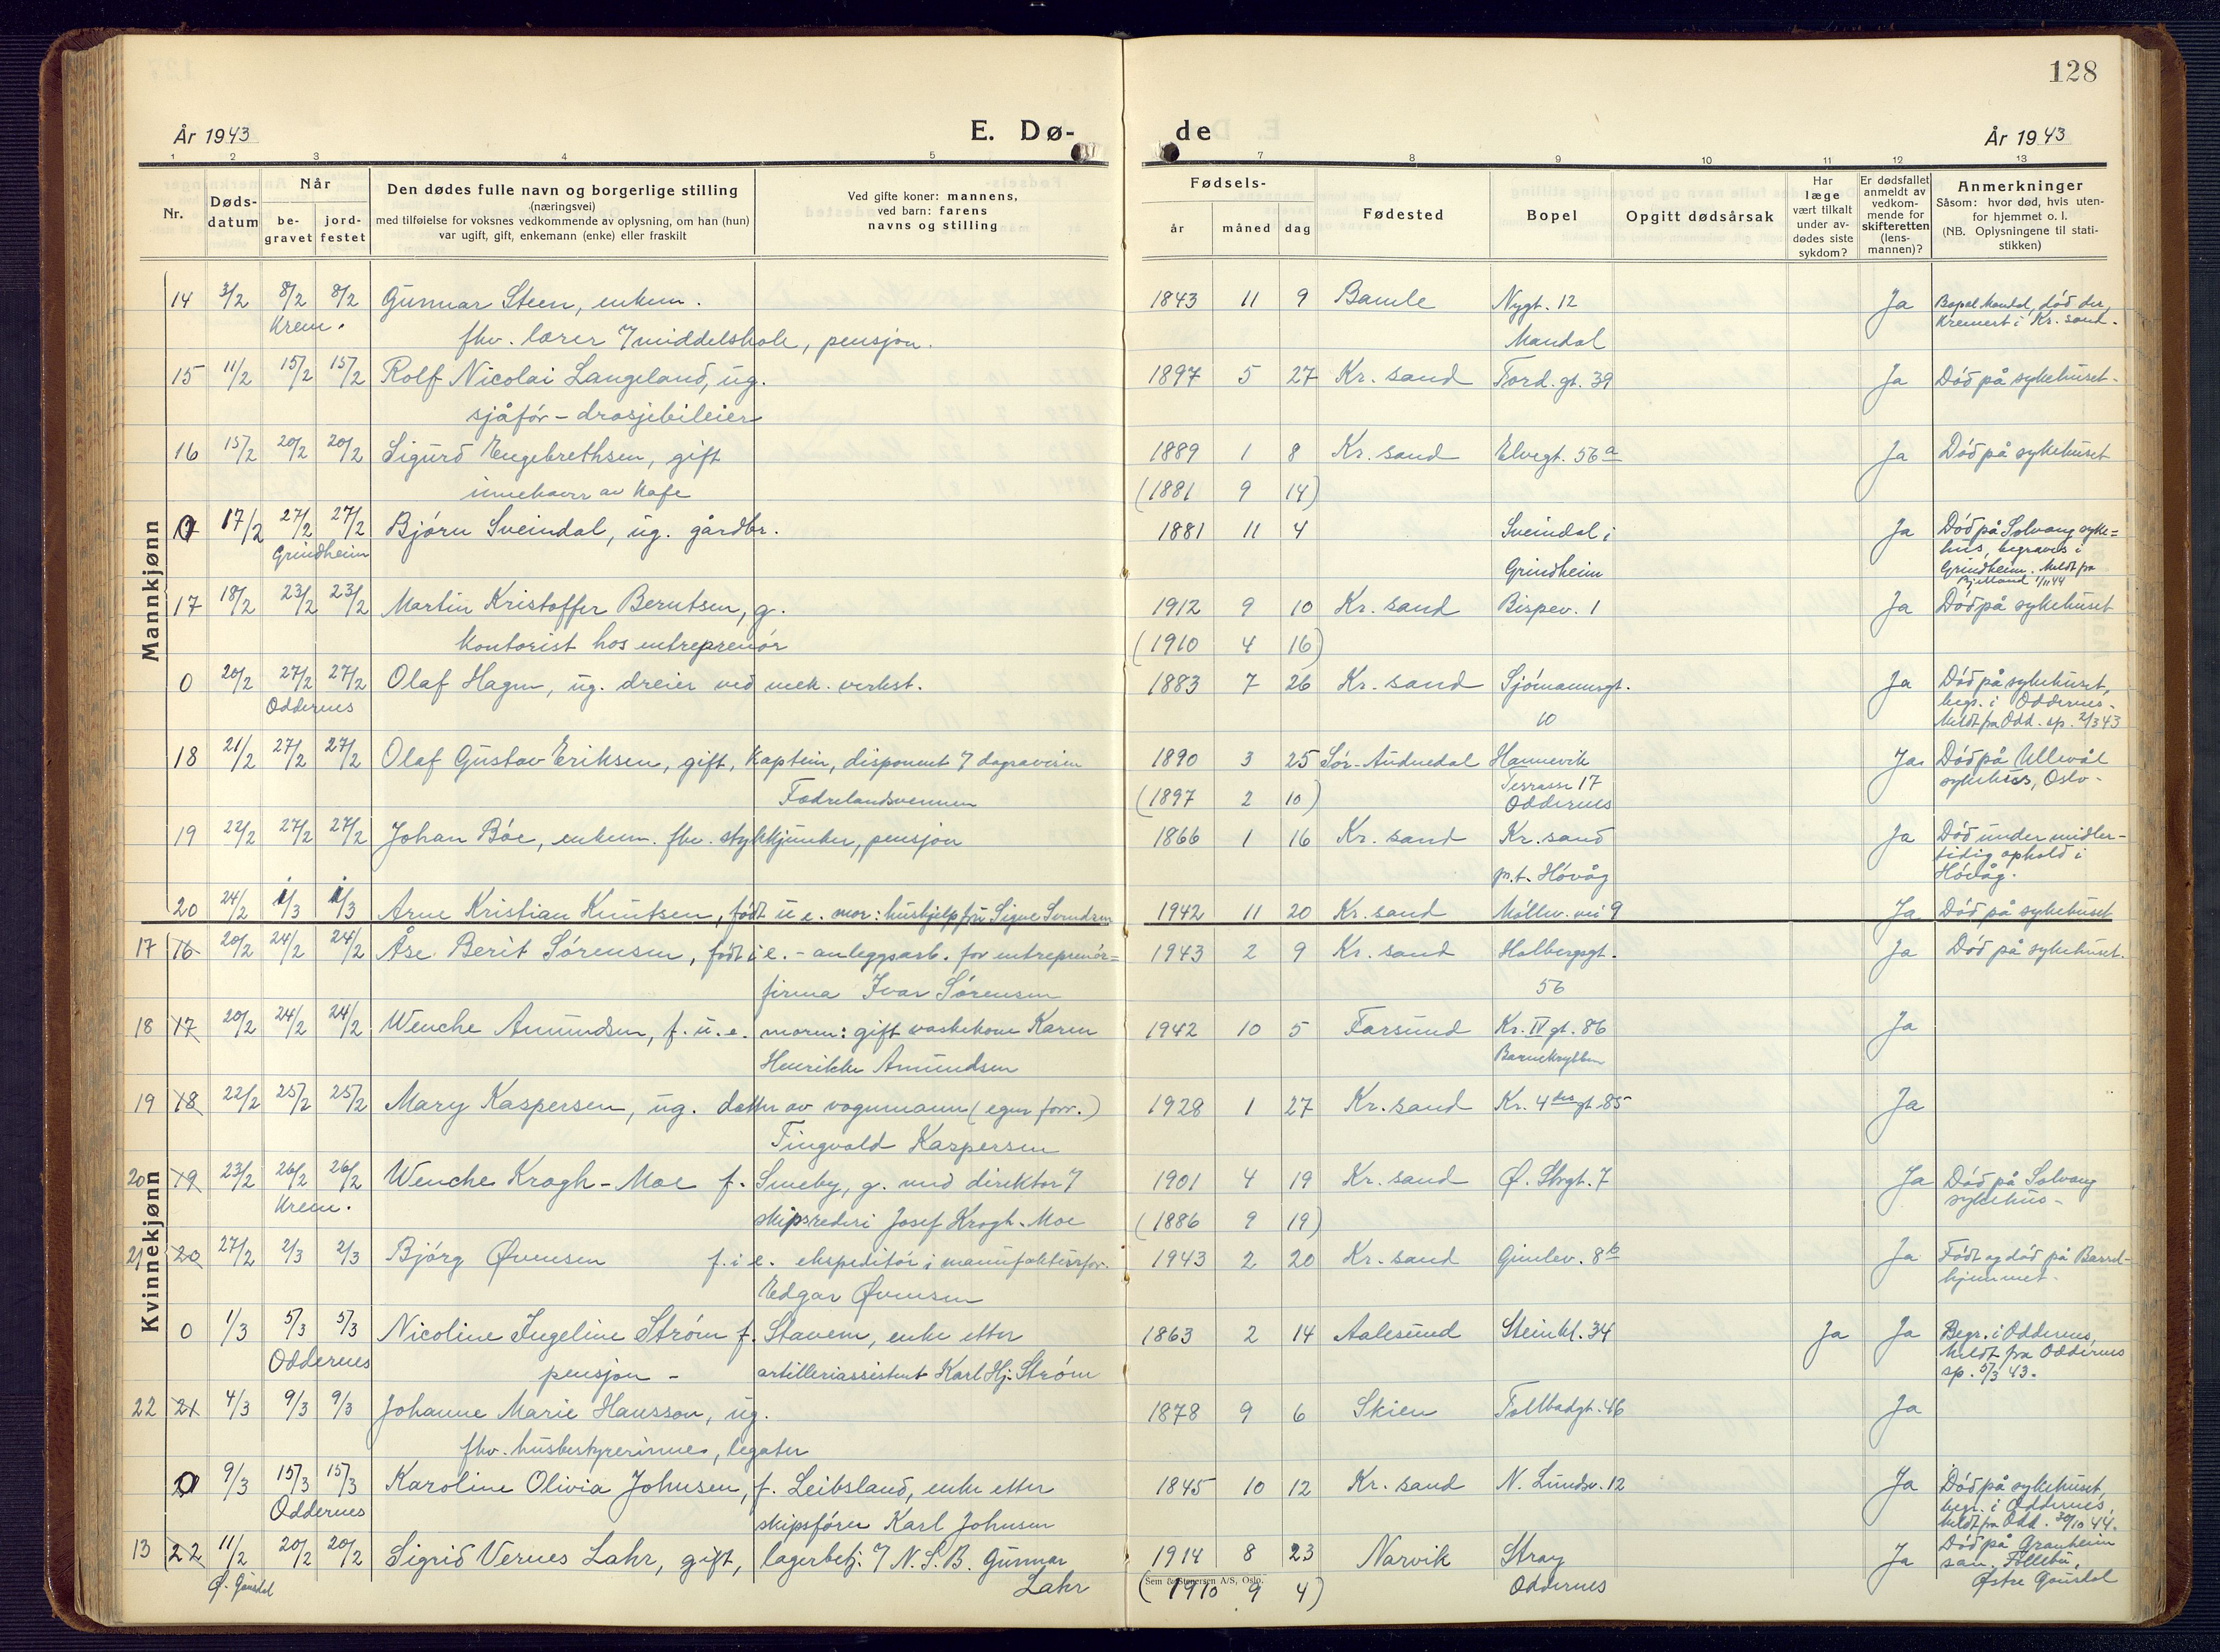 128
År 1943
E. Dø-
de
År 1943
1 2 3 4 5 7 8 9 10 11 12 13
Nr.
Døds-
datum
Når
be-
gravet
jord-
festet
Den dødes fulle navn og borgerlige stilling
(næringsvei)
med tilføielse for voksnes vedkommende av oplysning, om han (hun)
var ugift, gift, enkemann (enke) eller fraskilt
Ved gifte koner: mannens,
ved barn: farens
navns og stilling
Fødsels-
år måned dag
Fødested
Bopel
Opgitt dødsårsak
Har
læge
vært tilkalt
under av-
dødes siste
sykdom?
Er dødsfallet
anmeldt av
vedkom-
mende for
skifteretten
(lens-
mannen)?
Anmerkninger
Såsom: hvor død, hvis uten-
for hjemmet o. l.
(NB. Oplysningene til stati-
stikken)
Mannkjønn
14 3/2 8/2 8/2 Gunnar Steen, enkem. 1843 11 9 Bamle Nygt. 12 Ja Bopel Mandal, død der,
Krem. fhv. lærer 7 middelskole, pensjon. Mandal kremert i Kr. sand.
15 11/2 15/2 15/2 Rolf Nicolai Langeland, ug. 1897 5 27 Kr. sand Tord. gt. 39 Ja Død på sykehuset.
sjåfør - drosjebileier
16 15/2 20/2 20/2 Sigurd Engebrethsen, gift 1889 1 8 Kr. sand Elvegt. 56a Ja Død på sykehuset
innehaver av kafe (1881 9 14)
0 17/2 27/2 27/2 Bjørn Sveindal, ug. gårdbr. 1881 11 4 Sveindal i Ja Død på Solvang syke=
Grindheim Grindheim hus, begraves i
Grindheim. Meldt fra
Bjelland 1/11 44
17 18/2 23/2 23/2 Martin Kristoffer Berntsen, g. 1912 9 10 Kr. sand Bispev. 1 Ja Død på sykehuset
kontorist hos entreprenør (1910 4 16)
0 20/2 27/2 27/2 Olaf Hagen, ug. dreier ved mek. verkst. 1883 7 26 Kr. sand Sjømannsgt. Ja Død på sykehuset,
Oddernes 10 begr. i Oddernes.
Meldt fra Odd. sp. 2/3 43
18 21/2 27/2 27/2 Olaf Gustav Eriksen, gift, kaptein, disponent 7 dagsavisen 1890 3 25 Sør-Audnedal Hannevik Ja Død på Ullevål
Fædrelandsvennen (1897 2 10) Terrasse 17 sykehus, Oslo-
Oddernes
19 22/2 27/2 27/2 Johan Bøe, enkem. fhv. stykkjunker, pensjon 1866 1 16 Kr. sand Kr. sand Ja Død under midler-
p.t. Høvåg tidig ophold i
Høvåg.
20 24/2 1/3 1/3 Arne Kristian Knutsen, født u. e. mor: hushjelp frk Signe Svendsen 1942 11 20 Kr. sand Møllev. vei 9 Ja Død på sykehuset
Kvinnekjønn
17 16 20/2 24/2 24/2 Åse Berit Sørensen, født i e. - anleggsarb. for entreprenør= 1943 2 9 Kr. sand Holbergsgt. Ja Død på sykehuset.
firma Ivar Sørensen 56
18 17 20/2 24/2 24/2 Wenche Amundsen, f. u. e. moren: gift vaskekone Karen 1942 10 5 Farsund Kr. IV gt. 86 Ja
Henrikke Amundsen Barnekrybben
19 18 22/2 25/2 25/2 Mary Kaspersen, ug. datter av vognmann (egen forr.) 1928 1 27 Kr. sand Kr. 4des gt. 85 Ja
Tingvald Kaspersen
20 19 23/2 26/2 26/2 Wenche Krogh-Moe f. Smeby, g. med direktør 7 1901 4 19 Kr. sand Ø. Strgt. 7 Ja Død på Solvang
Krem. skipsrederi Josef Krogh-Moe (1886 9 19) sykehus-
21 20 27/2 2/3 2/3 Bjørg Øvensen f. i e. ekspeditør i manufakturforr. 1943 2 20 Kr. sand Gimlev. 8b Ja Født og død på Barsel-
Edgar Øvensen hjemmet.
0 1/3 5/3 5/3 Nicoline Ingeline Strøm f. Stavem, enke etter 1863 2 14 Aalesund Steinkl. 34 Ja Ja Begr. i Oddernes,
Oddernes pensjon - artilleriassistent Karl Hj. Strøm Meldt fra Oddernes
sp. 5/3 43.
22 21 4/3 9/3 9/3 Johanne Marie Hansson, ug. 1878 9 6 Skien Tollbodgt. 46 Ja
fhv. husbestyrerinne, legater
0 9/3 15/3 15/3 Karoline Olivia Johnsen, f. Leibsland, enke etter 1845 10 12 Kr. sand N. Lundsv. 12 Ja Død på sykehuset,
Oddernes skipsfører Karl Johnsen begr. i Oddernes,
Meldt fra Odd. 30/10 44.
13 22 11/2 20/2 20/2 Sigrid Vernes Lahr, gift, lagerbetj. 7 N. S. B. Gunnar 1914 8 23 Narvik Stray Ja Død på Granheim
Ø. Gausdal Lahr (1910 9 4) Oddernes san. Follebu,
Østre Gausdal
Sem & Stenersen A/S, Oslo.